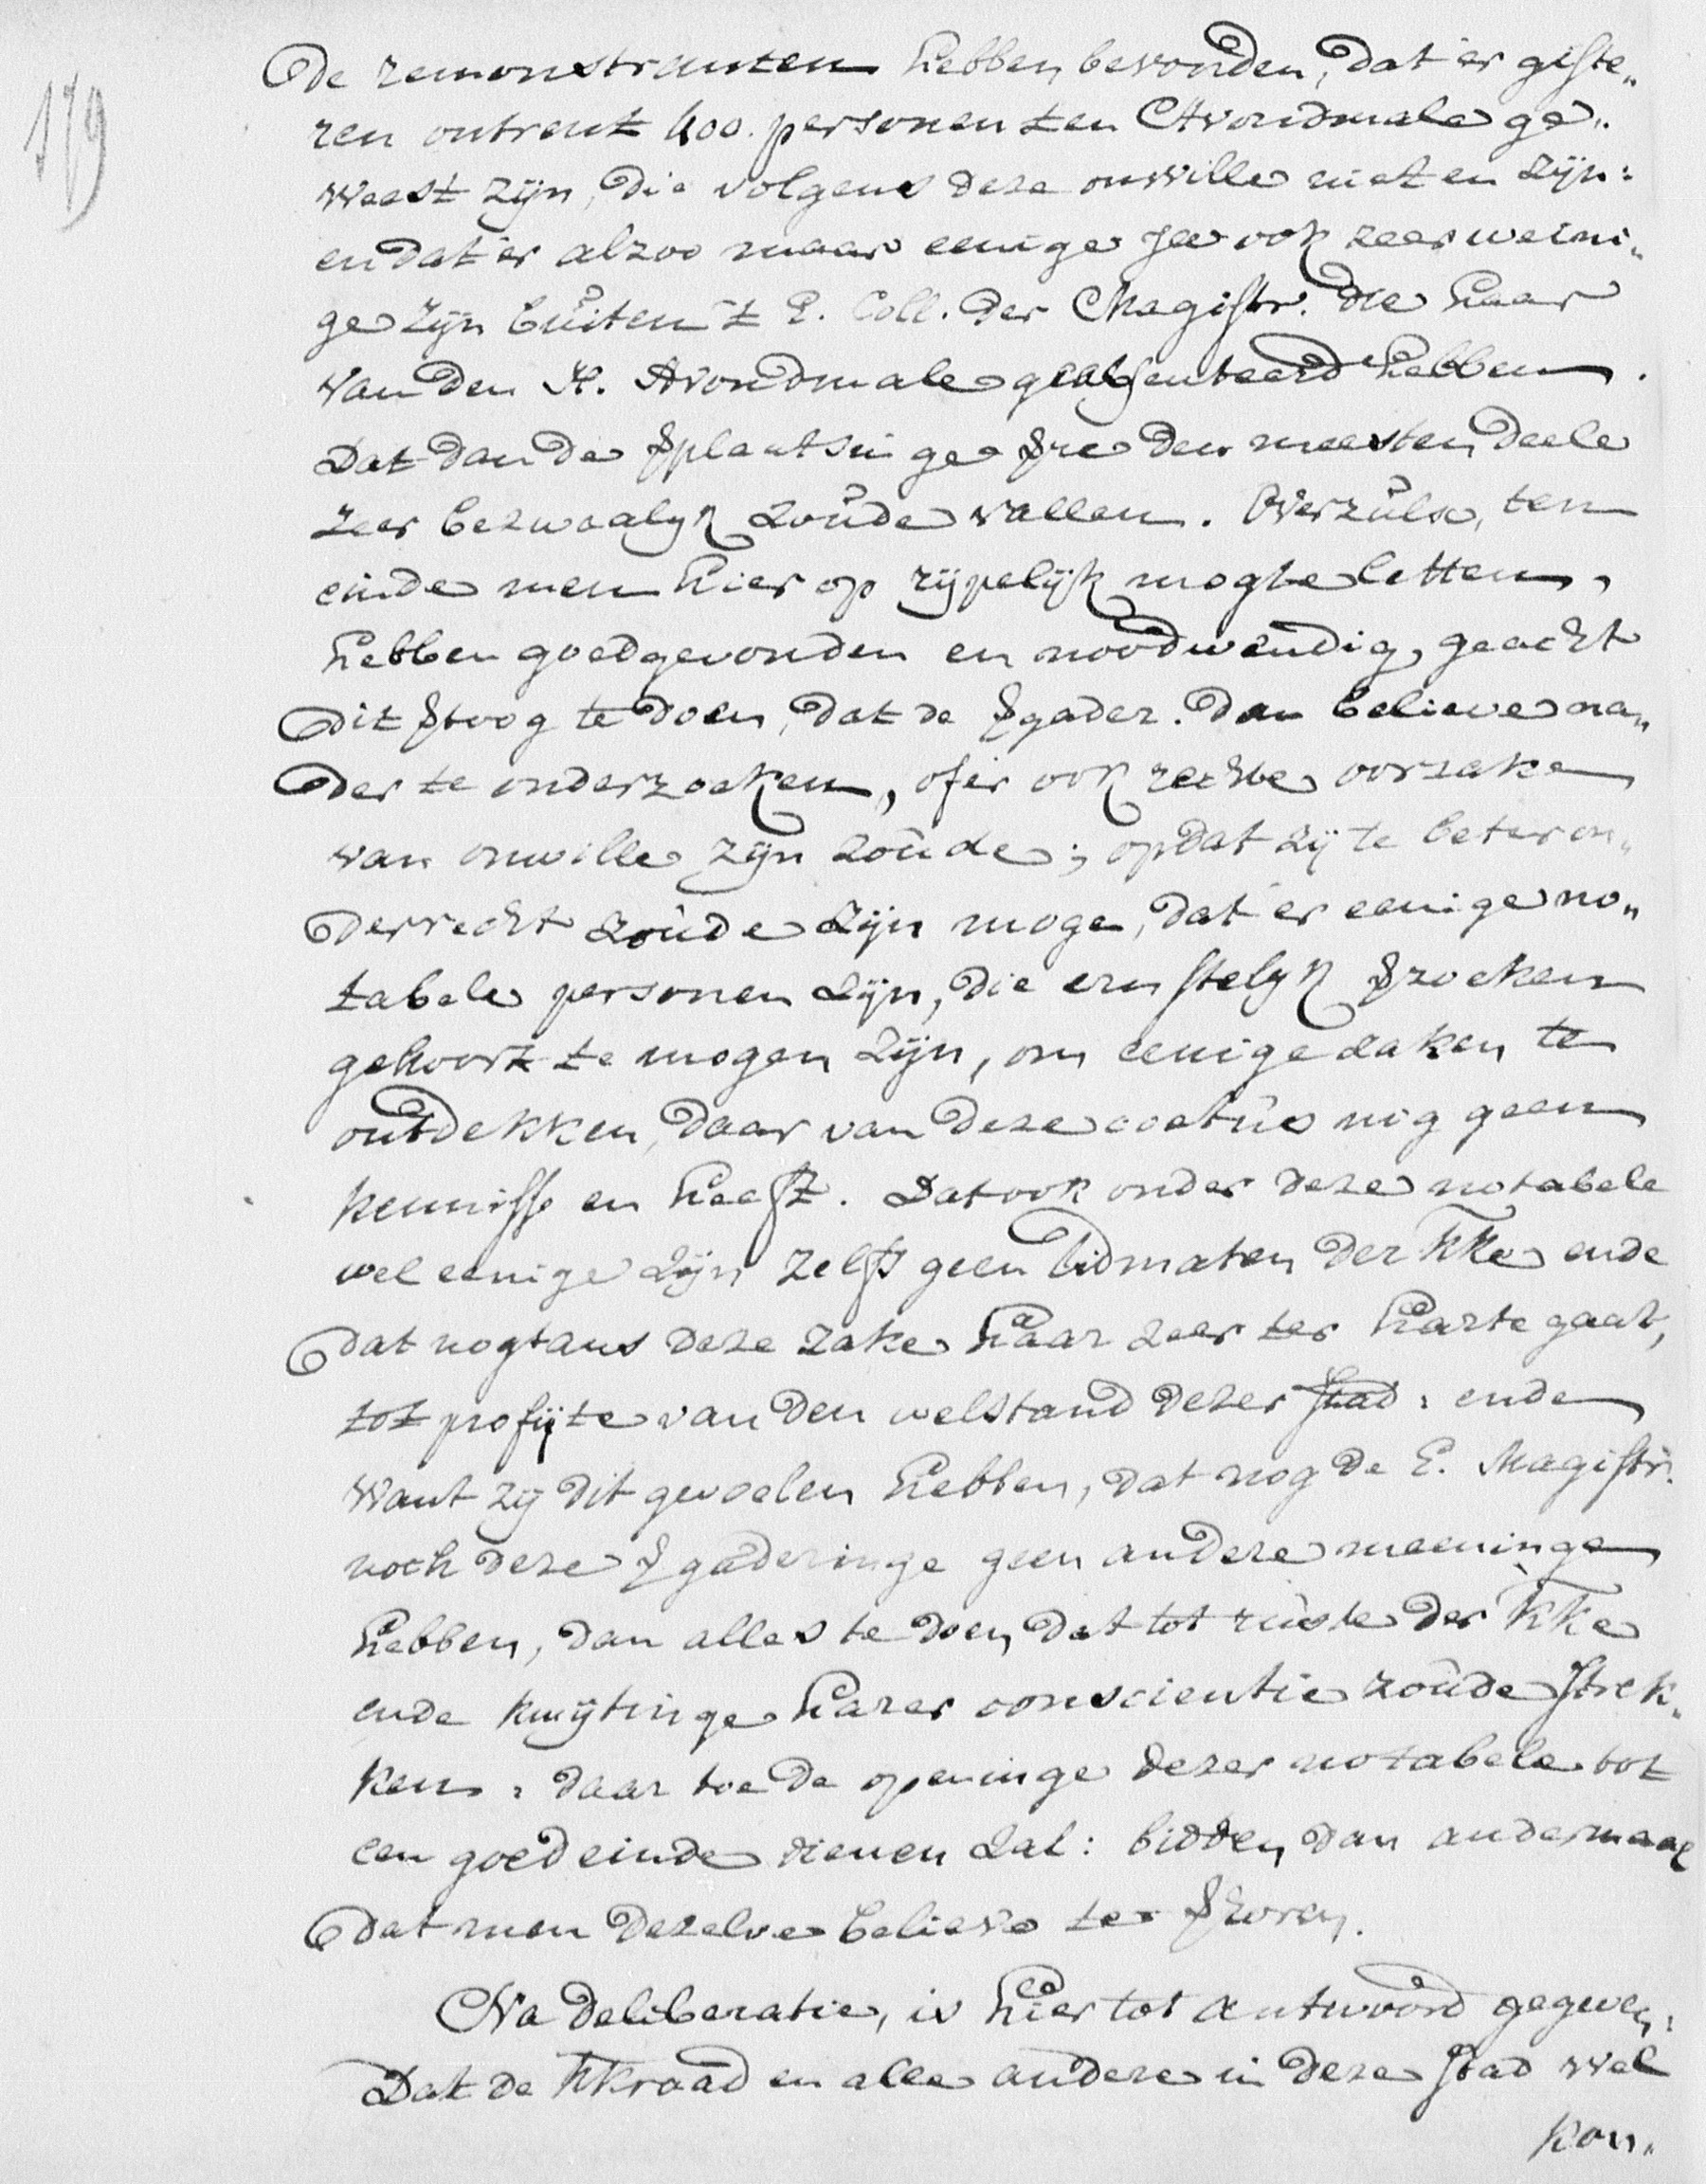 179
De remonstranten hebben bevonden, dat er giste„
ren ontrent 400. personen ten Avondmale ge„
weest zijn, die volgens deze onwille niet en zijn:
en dat er alzoo maar eenige jae ook zeer weini„
ge zijn buiten 't E. Coll. der Magistr. die haar
van den H. Avondmale geabsenteerd hebben.
Dat dan de plaatsinge den meesten deele
zeer bezwaalyk zoude vallen. Overzulx, ten
einde men hier op rijpelijk mogte letten,
hebben goedgevonden en noodwendig geacht
dit toog te doen, dat de gader. dan believe na„
der te onderzoeken, of er ook rechte oorzake
van onwille zijn zoude; opdat zij te beter on„
derrecht zoude zijn moge, dat er eenige no„
tabele personen zijn, die ernstelyk zoeken
gehoort te mogen zijn, om eenige zaken te
ontdekken, daar van deze coetus nig geen
kennisse en heeft. Dat ook onder deze notabele
wel eenige zijn zelfs geen lidmaten der KKe ende
dat nogtans deze zake haar zeer ter harte gaat,
tot profijte van den welstand dezer stad: ende
want zij dit gevoelen hebben, dat nog de E. Magistr.
noch deze gaderinge geen andere meeninge
hebben, dan alles te doen, dat tot ruste der KKe
ende kwijtinge harer conscientie zoude strek„
ken: daar toe de openinge dezer notabele tot
een goed einde dienen zal: bidden dan andermaal
dat men dezelve believe te horen.
Na deliberatie, is hier tot antwoord gegeven:
Dat de KKraad en alle andere in deze stad wel
kon„